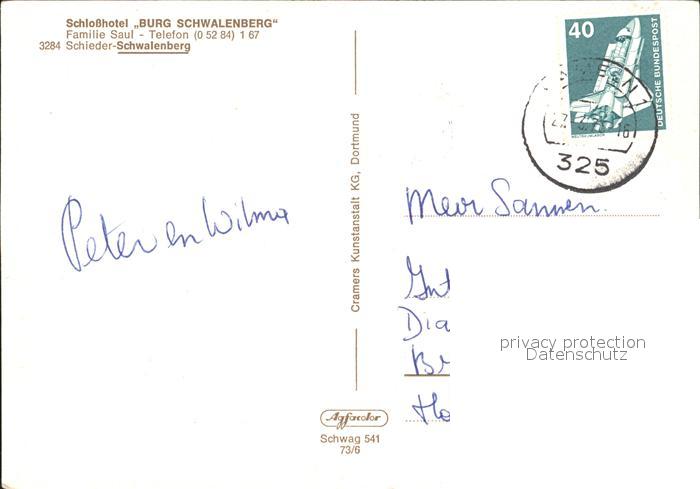 Schloßhotel „BURG SCHWALENBERG“
Familie Saul - Telefon (0 52 84) 1 67
3284 Schieder-Schwalenberg
40
DEUTSCHE BUNDESPOST
325
Cramers Kunstanstalt KG, Dortmund
Peter en Wilma
Mevr Sannen.
Int
Dia
Br
Ho
privacy protection
Datenschutz
Agfacolor
Schwag 541
73/6